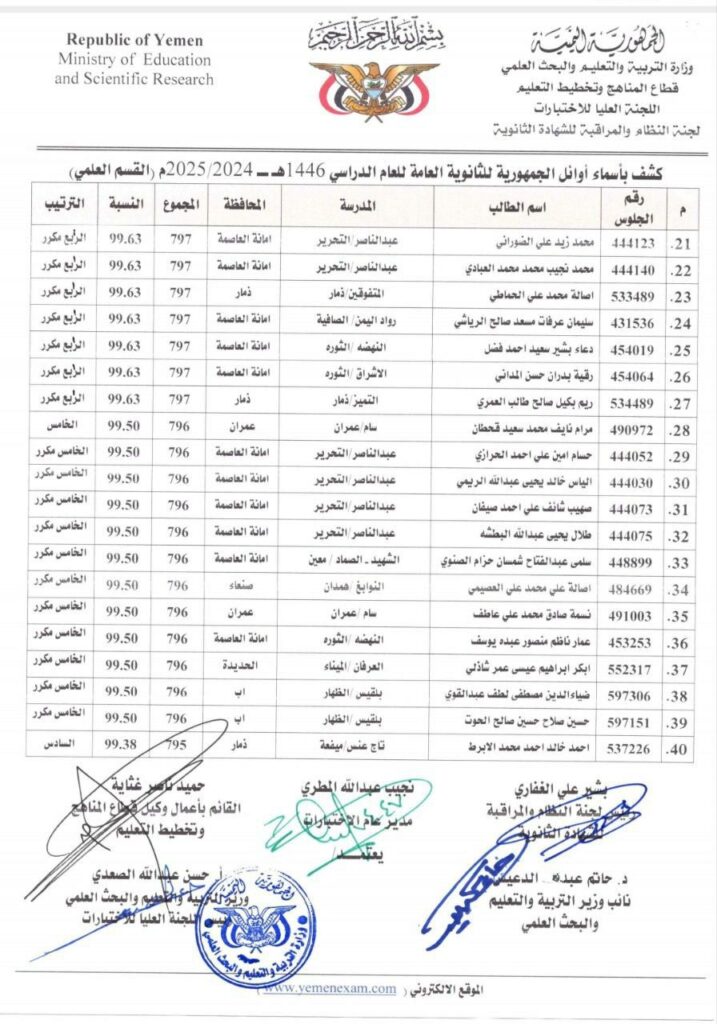 Republic of Yemen
Ministry of Education
and Scientific Research
بسم الله الرحمن الرحيم
الجمهورية اليمنية
وزارة التربية والتعليم والبحث العلمي
قطاع المناهج وتخطيط التعليم
اللجنة العليا للاختبارات
لجنة النظام والمراقبة للشهادة الثانوية
كشف بأسماء أوائل الجمهورية للثانوية العامة للعام الدراسي 1446هـ ــ 2025/2024م (القسم العلمي)
م رقم الجلوس اسم الطالب المدرسة المحافظة المجموع النسبة الترتيب
21. 444123 محمد زيد علي الضوراني عبدالناصر/التحرير امانة العاصمة 797 99.63 الرابع مكرر
22. 444140 محمد نجيب محمد محمد العبادي عبدالناصر/التحرير امانة العاصمة 797 99.63 الرابع مكرر
23. 533489 اصالة محمد علي الحماطي المتفوقين/ذمار ذمار 797 99.63 الرابع مكرر
24. 431536 سليمان عرفات مسعد صالح الرياشي رواد اليمن/الصافية امانة العاصمة 797 99.63 الرابع مكرر
25. 454019 دعاء بشير سعيد احمد فضل النهضه /الثوره امانة العاصمة 797 99.63 الرابع مكرر
26. 454064 رقية بدران حسن المداني الاشراق/الثوره امانة العاصمة 797 99.63 الرابع مكرر
27. 534489 ريم بكيل صالح طالب العمري التميز/ذمار ذمار 797 99.63 الرابع مكرر
28. 490972 مرام نايف محمد سعيد قحطان سام/عمران عمران 796 99.50 الخامس
29. 444052 حسام امين علي احمد الحرازي عبدالناصر/التحرير امانة العاصمة 796 99.50 الخامس مكرر
30. 444030 الياس خالد يحيى عبدالله الريمي عبدالناصر/التحرير امانة العاصمة 796 99.50 الخامس مكرر
31. 444073 صهيب شائف علي احمد صيفان عبدالناصر/التحرير امانة العاصمة 796 99.50 الخامس مكرر
32. 444075 طلال يحيى عبدالله البطشه عبدالناصر/التحرير امانة العاصمة 796 99.50 الخامس مكرر
33. 448899 سلمى عبدالفتاح شمسان حزام الصنوي الشهيد ـ الصماد / معين امانة العاصمة 796 99.50 الخامس مكرر
34. 484669 اصالة علي محمد علي العصيمي النوابغ/همدان صنعاء 796 99.50 الخامس مكرر
35. 491003 نسمة صادق محمد علي عاطف سام/عمران عمران 796 99.50 الخامس مكرر
36. 453253 عمار ناظم منصور عبده يوسف النهضه /الثوره امانة العاصمة 796 99.50 الخامس مكرر
37. 552317 ابكر ابراهيم عيسى عمر شاذلي العرفان/الميناء الحديدة 796 99.50 الخامس مكرر
38. 597306 ضياءالدين مصطفى لطف عبدالقوي بلقيس/الظهار اب 796 99.50 الخامس مكرر
39. 597151 حسين صلاح حسين صالح الحوت بلقيس/الظهار اب 796 99.50 الخامس مكرر
40. 537226 احمد خالد احمد محمد الابرط تاج عنس/ميفعة ذمار 795 99.38 السادس
بشير علي الغفاري
لجنة النظام والمراقبة
للشهادة الثانوية
نجيب عبدالله المطري
مدير عام الاختبارات
يعتمد/
حميد ناصر غثاية
القائم بأعمال وكيل قطاع المناهج
وتخطيط التعليم
د. حاتم الدعيس
نائب وزير التربية والتعليم
والبحث العلمي
أ. حسن عبدالله الصعدي
وزير التربية والتعليم والبحث العلمي
رئيس اللجنة العليا للاختبارات
الجمهورية اليمنية
وزارة التربية والتعليم والبحث العلمي
الموقع الالكتروني ( www.yemenexam.com )